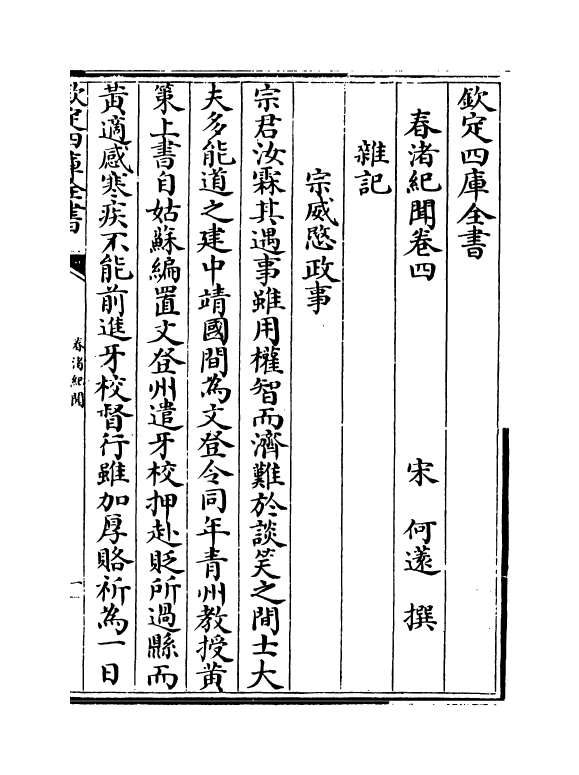 欽定四庫全書
春渚紀聞卷四
宋 何薳 撰
雜記
宗威愍政事
宗君汝霖其遇事雖用權智而濟難於談笑之間士大
夫多能道之建中靖國間為文登令同年青州教授黃
策上書自姑蘇編置文登州遣牙校押赴貶所過縣而
黃適感寒疾不能前進牙校督行雖加厚賂祈為一日
欽定四庫全書
春渚紀聞
一